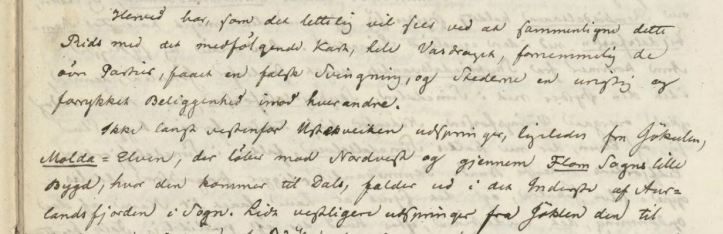 Herved har, som det letteligt vil sees ved at sammenligne dette
Rids med det medfölgende Kart, hele Vasdraget, fornemmelig de
övre Partier, faaet en falsk Svingning, og Stederne en urigtig og
forrykket Beliggenhed imod hverandre.
Ikke langt vestenfor Ustekveiken udspringer, ligeledes fra Jökulen,
Molda-Elven, der löber mod Nordvest og gjennem Flom Sogns lille
Bygd, hvor den kommer til Dals, falder ud i det Inderste af Aur-
landsfjorden i Sogn. Lidt vestligere udspringer fra Jöklen den til